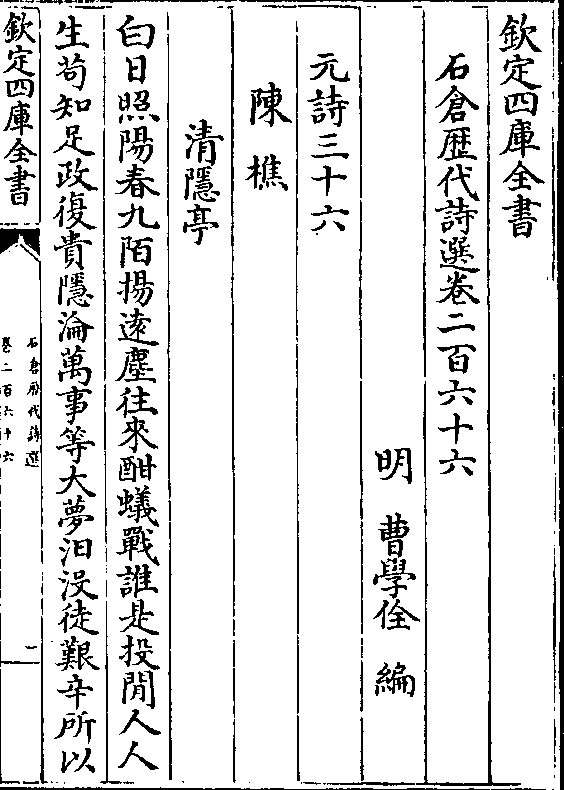 欽定四庫全書
石倉歴代詩選卷二百六十六
明　曹學佺　編
元詩三十六
陳樵
清隱亭
白日照陽春九陌揚遠塵往來酣蟻戰誰是投閒人人
生苟知足政復貴隱淪萬事等大夢汩没徒艱辛所以
欽定四庫全書
石倉歴代詩選
卷二百六十六
一